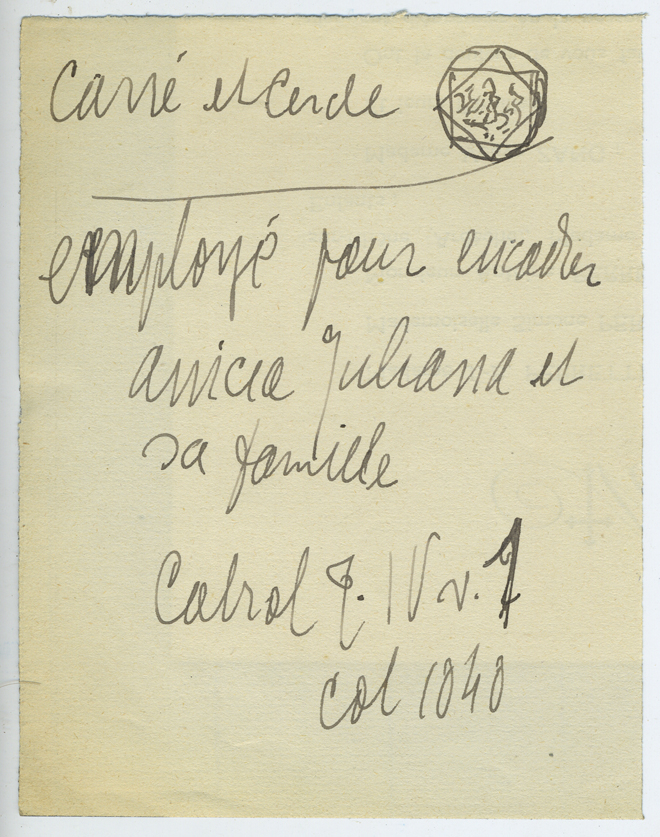 Carré et Cercle
employé pour encadrer
anicia Juliana et
sa famille
Cabrol T. IV v. 1
col 1040